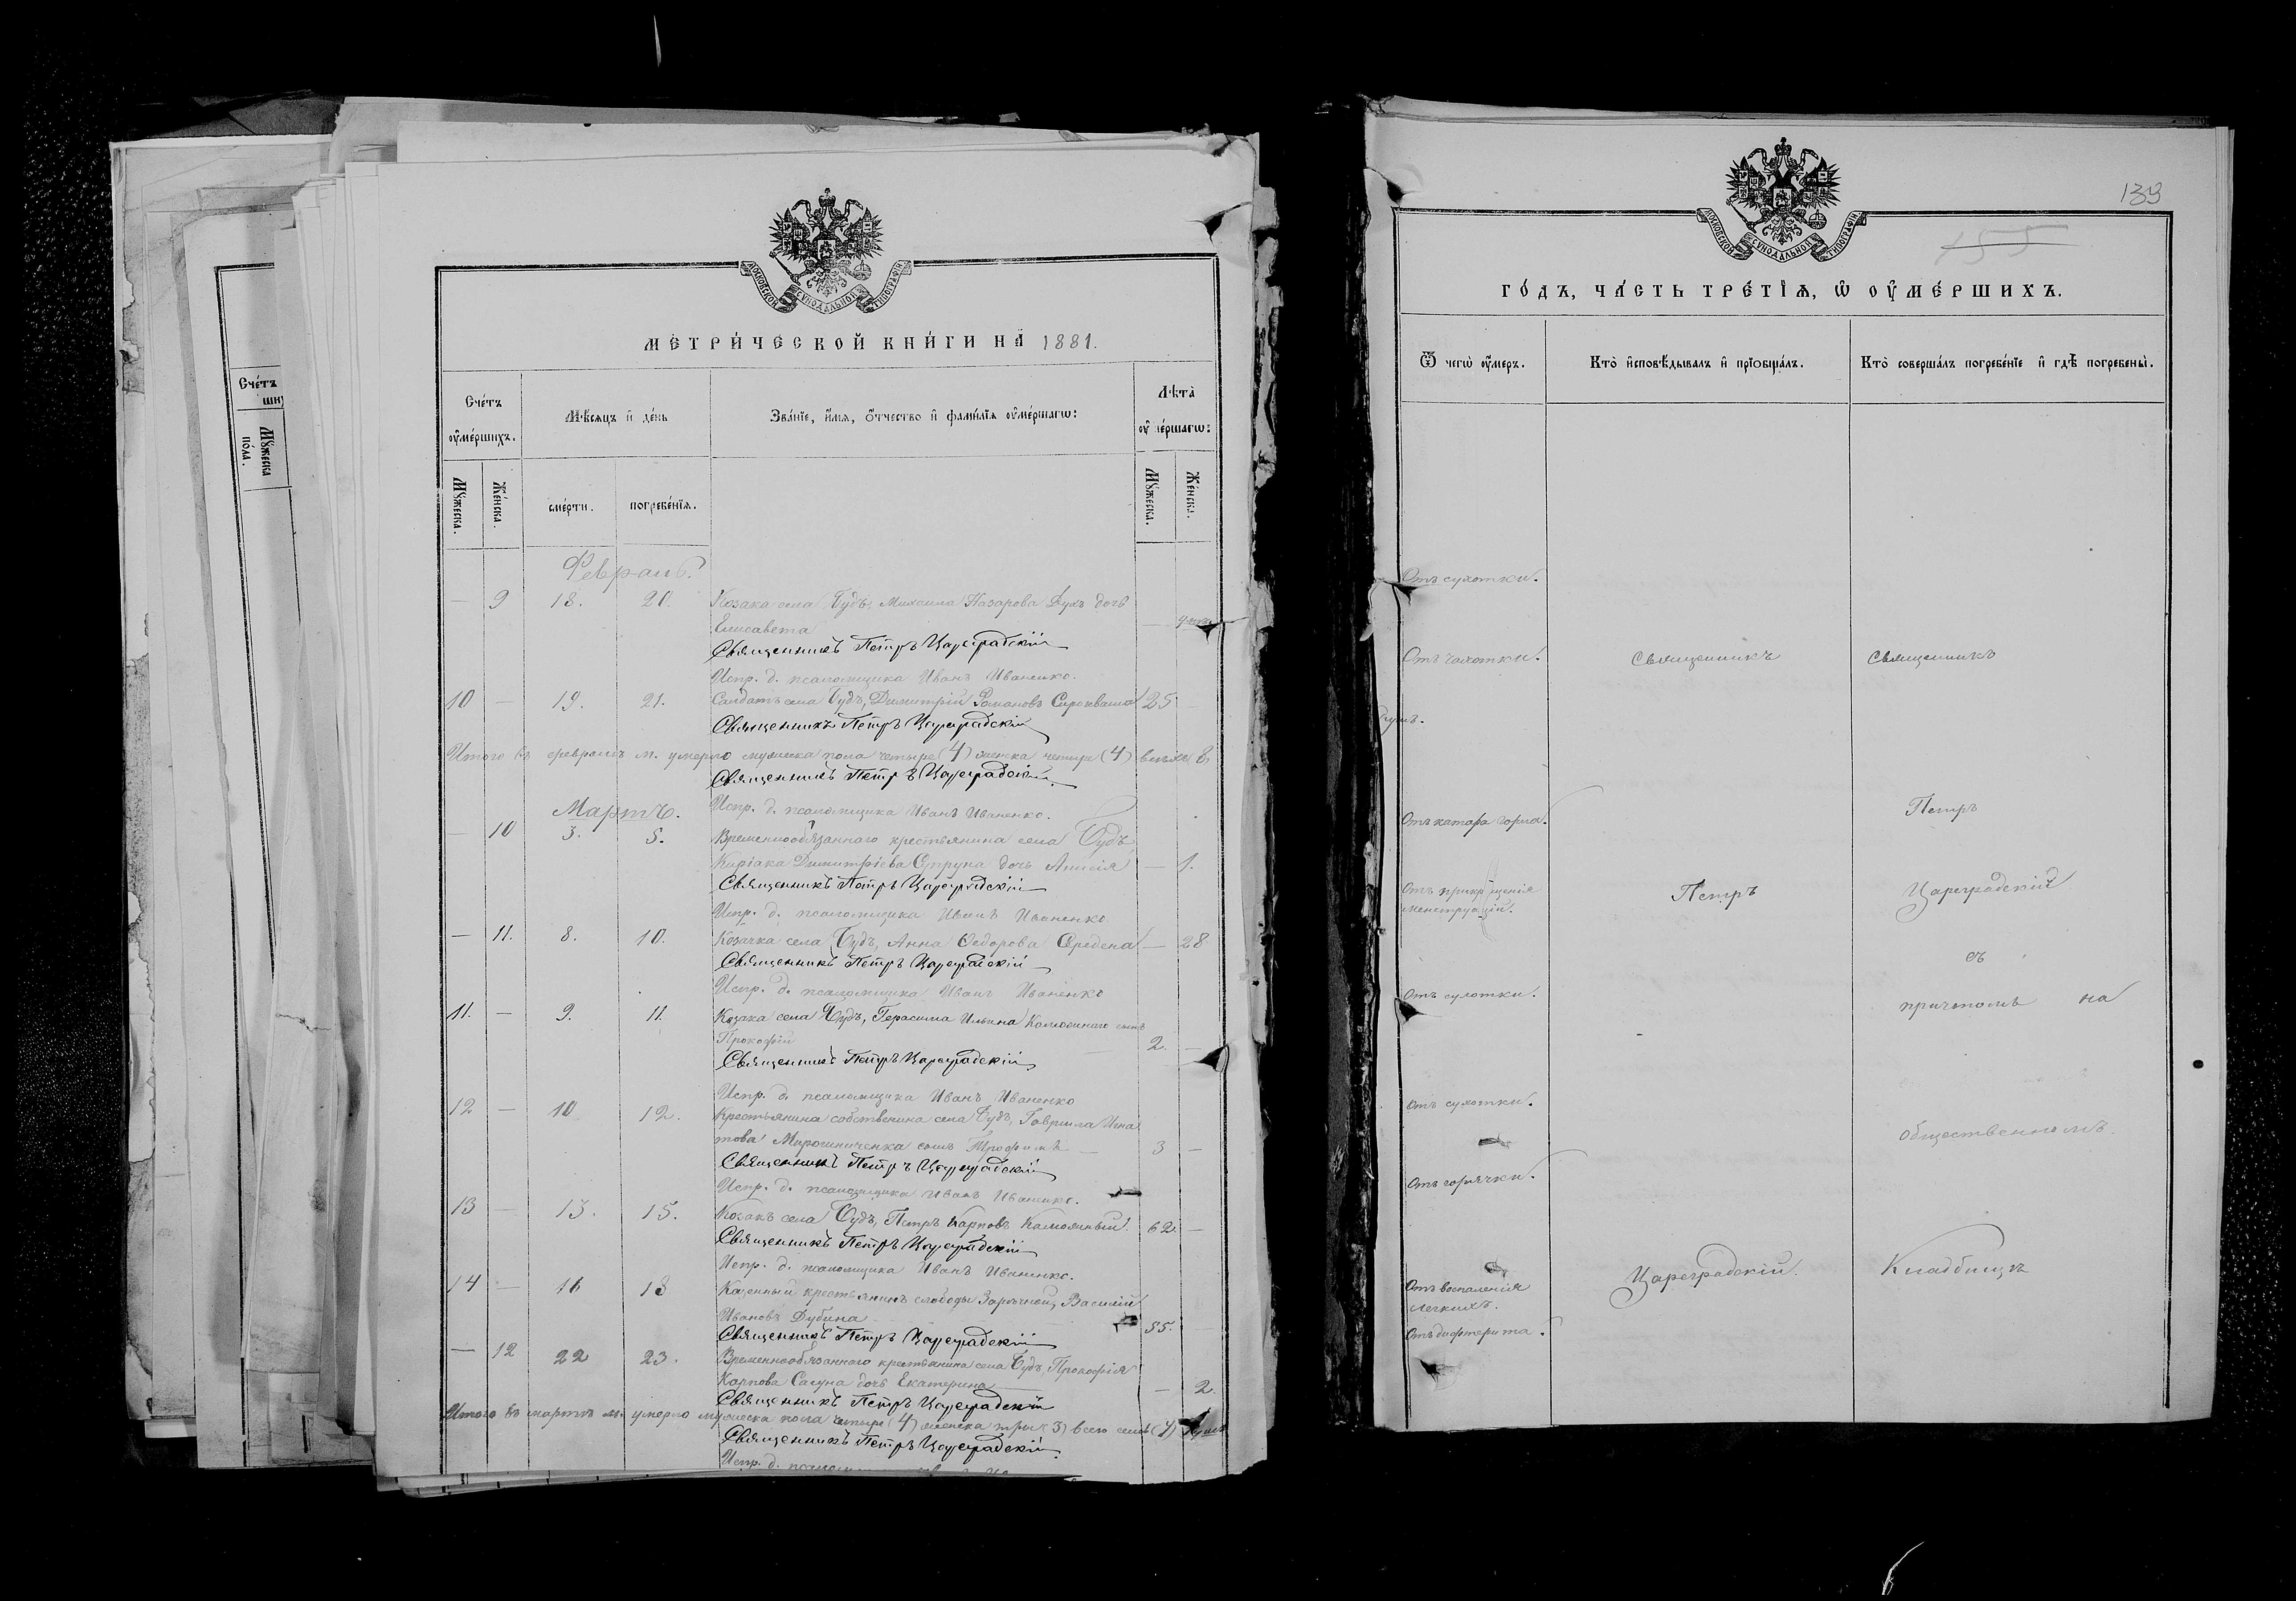 МОСКОВСКОЙ СУНОДАЛЬНОЙ ТИПОГРАФІИ
МЕТРИ́ЧЕСКОЙ КНИ́ГИ НА̀ 1881.
Сче́тъ оу҆ме́ршихъ.
Мѣ́сяцъ и҆ де́нь
Зва́нїе, и҆́мя, ѻ҆́тчество и҆ фами́лїя оу҆ме́ршагѡ:
Лѣ́та оу҆ме́ршагѡ:
Мꙋ́жеска.
Же́нска.
сме́рти.
погребе́нїя.
Мꙋ́жеска.
Же́нска.
Февраль.
— 9 18. 20. Козака села Будъ, Михаила Назарова дочь
Елисавета
Священникъ Петръ Цареградскій
Испр. д. псаломщика Иванъ Иваненко.
10 — 19. 21. Солдатъ села Будъ, Димитрій Романовъ Сыроваша 25 —
Священникъ Петръ Цареградскій
Итого въ февралѣ м. умерло мужеска пола четыре (4) женска четыре (4) всѣхъ 8
Священникъ Петръ Цареградскій
Испр. д. псаломщика Иванъ Иваненко.
Мартъ.
— 10 3. 5. Временнообязаннаго крестьянина села Будъ,
Киріака Димитріева Струпа дочь Анисія — 1.
Священникъ Петръ Цареградскій
Испр. д. псаломщика Иванъ Иваненко
— 11. 8. 10. Козачка села Будъ, Анна Ѳедорова — 28
Священникъ Петръ Цареградскій
Испр. д. псаломщика Иванъ Иваненко
11. — 9. 11. Козака села Будъ, Герасима Ильина сынъ
Прокофій 2. —
Священникъ Петръ Цареградскій
Испр. д. псаломщика Иванъ Иваненко
12 — 10 12. Крестьянина собственника села Будъ, Гавріила Игна
това Мирошниченка сынъ Трофимъ — 3 —
Священникъ Петръ Цареградскій
Испр. д. псаломщика Иванъ Иваненко.
13 — 13. 15. Козакъ села Будъ, Петръ Карповъ 62 —
Священникъ Петръ Цареградскій
Испр. д. псаломщика Иванъ Иваненко.
14 — 16 18 Казенный крестьянинъ слободы Василій
Ивановъ Дубина 55. —
Священникъ Петръ Цареградскій
— 12 22 23. Временнообязаннаго крестьянина села Будъ Прокофія
Карпова дочь Екатерина — 2.
Священникъ Петръ Цареградскій
Итого въ мартѣ м. умерло мужеска пола четыре (4) женска три (3) всего семь (7)
Священникъ Петръ Цареградскій
Испр. д.
Сче́тъ
Мꙋ́жеска по́ла.
139
МОСКОВСКОЙ СУНОДАЛЬНОЙ ТИПОГРАФІИ
155
ГО́ДЪ, ЧА́СТЬ ТРЕ́ТЇЯ, Ѽ ОУ҆МЕ́РШИХЪ.
Ѿ чегѡ̀ оу҆́меръ.
Кто̀ и҆сповѣ́дывалъ и҆ прїѻбща́лъ.
Кто̀ соверша́лъ погребе́нїе и҆ гдѣ̀ погребены̀.
Отъ сухотки.
Отъ чахотки. Священникъ Священникъ
Петръ
Отъ катара горла.
Отъ прикращенія Петръ Цареградскій
менструаціи.
съ
Отъ сухотки. причтомъ на
Отъ сухотки.
общественномъ
Отъ горячки.
Цареградскій. Кладбищѣ
Отъ воспаленія
легкихъ.
Отъ дифтерита.